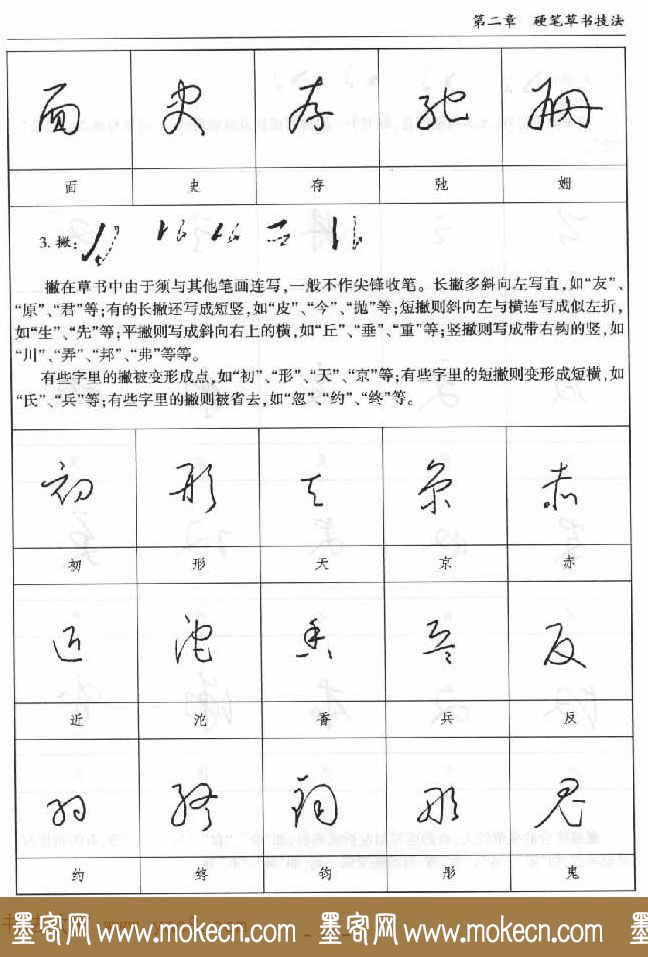 第二章 硬笔草书技法
面 史 存 弛 姗
面 史 存 弛 姗
3. 撇:
撇在草书中由于须与其他笔画连写,一般不作尖锋收笔。长撇多斜向左写直,如“友”、
“原”、“君”等;有的长撇还写成短竖,如“皮”、“今”、“抛”等;短撇则斜向左与横连写成似左折,
如“生”、“先”等;平撇则写成斜向右上的横,如“丘”、“垂”、“重”等;竖撇则写成带右钩的竖,如
“川”、“弄”、“邦”、“弗”等等。
有些字里的撇被变形成点,如“初”、“形”、“天”、“京”等;有些字里的短撇则变形成短横,如
“氏”、“兵”等;有些字里的撇则被省去,如“忽”、“约”、“终”等。
初 形 天 京 赤
初 形 天 京 赤
近 沱 香 兵 反
近 沱 香 兵 反
约 终 钧 彤 鬼
约 终 钧 彤 鬼
墨客网 www.mokecn.com 墨客网 www.mokecn.com